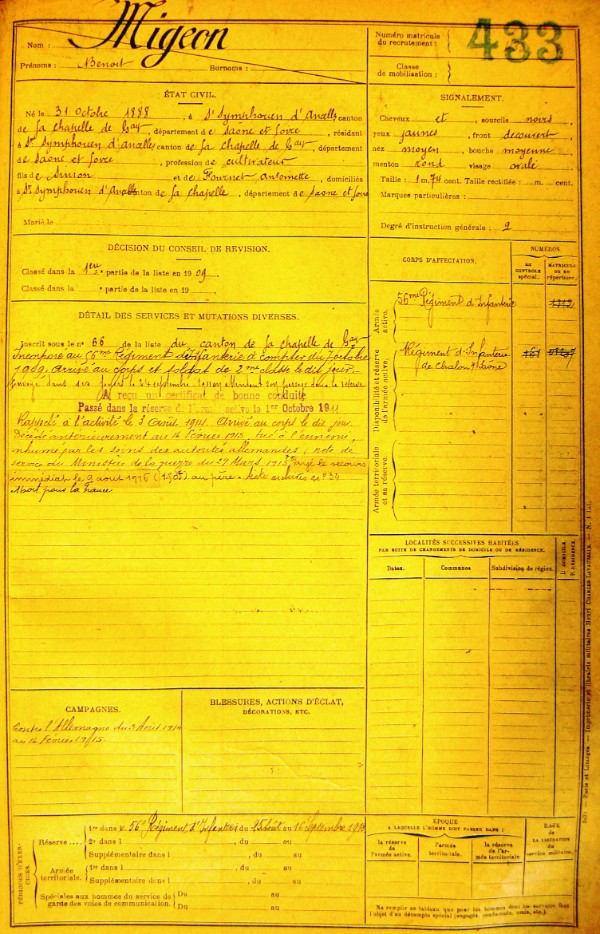 Nom : Migeon
Prénoms : Benoit Surnoms :
Numéro matricule
du recrutement :
433
Classe
de mobilisation :
ÉTAT CIVIL.
Né le 31 Octobre 1888, à St Symphorien d'Ancelles canton
de La chapelle de Gay, département de Saone et Loire, résidant
à St Symphorien d'Ancelles canton de La chapelle de Gay, département
de Saone et Loire, profession de cultivateur
fils de Simon et de Fournet Antoinette, domiciliés
à St Symphorien d'Ancelles canton de La chapelle, département de Saone et Loire
Marié le
SIGNALEMENT.
Cheveux et, sourcils noirs,
yeux jaunes, front decouvert
nez moyen, bouche moyenne,
menton rond visage ovale
Taille : 1 m. 74 cent. Taille rectifiée : m. cent.
Marques particulières :
Degré d'instruction générale : 2
DÉCISION DU CONSEIL DE REVISION.
Classé dans la 1ere partie de la liste en 1909.
Classé dans la partie de la liste en 19
DÉTAIL DES SERVICES ET MUTATIONS DIVERSES.
Inscrit sous le n° 66 de la liste du canton de la chapelle de Gay
Incorporé au 56me Régiment d'Infanterie à compter du 7 octobre
1909. Arrivé au corps et soldat de 2me classe le dit jour.
A reçu un certificat de bonne conduite
Passé dans la réserve de l'armée active le 1er Octobre 1911
Rappelé à l'activité le 3 Août 1914. Arrivé au corps le dit jour.
Décédé antérieurement au 16 Février 1915, tué à l'ennemi,
inhumé par les soins des autorités allemandes, note de
service du Ministère de la guerre du 27 Mars 1915. Payé le secours
immédiat le 9 août 1916 (150f) au père.
Mort pour la France
CORPS D'AFFECTATION.
NUMÉROS
AU CONTRÔLE spécial.
MATRICULE OU AU répertoire.
Armée active.
56me Régiment d'Infanterie
Disponibilité et réserve de l'armée active.
Régiment d'Infanterie
de Chalon s/ Saône
Armée territoriale et sa réserve.
LOCALITÉS SUCCESSIVES HABITÉES
PAR SUITE DE CHANGEMENTS DE DOMICILE OU DE RÉSIDENCE.
Dates. Communes Subdivision de région. D. DOMICILE. R. RÉSIDENCE.
CAMPAGNES.
Contre l'Allemagne du 3 Août 1914
au 16 Février 1915.
BLESSURES, ACTIONS D'ÉCLAT,
DÉCORATIONS, ETC.
PÉRIODES D'EXERCICES.
Réserve
1re dans le 56e Régiment d'Infanterie du 25 Août au 16 Septembre 1913
2e dans l , du au
Supplémentaire dans l , du au
Armée territoriale.
1re dans l , du au
Supplémentaire dans l , du au
Spéciales aux hommes du service de
garde des voies de communication.
Du au
Du au
ÉPOQUE
A LAQUELLE L'HOMME DOIT PASSER DANS :
la réserve de l'armée active. l'armée territoriale. la réserve de l'armée territoriale.
DATE DE LA LIBÉRATION du service militaire.
Ne remplir ce tableau que pour les hommes dont les services font
l'objet d'un décompte spécial (engagés, condamnés, omis, etc.).
Paris et Limoges. — Imprimerie et librairie militaires Henri CHARLES-LAVAUZELLE.